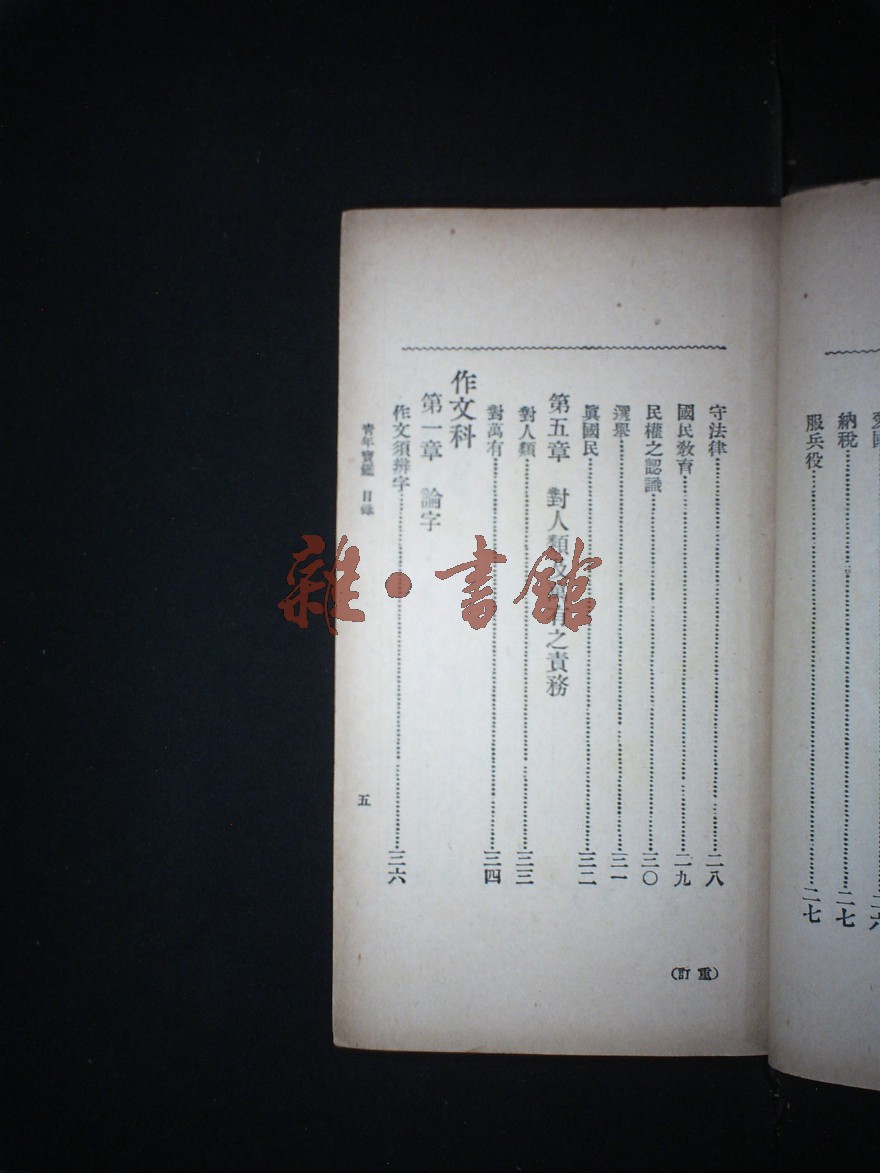 納稅……二七
服兵役……二七
守法律……二八
國民教育……二九
民權之認識……三〇
選舉……三一
眞國民……三二
第五章　對人類及萬有之責務
對人類……三三
對萬有……三四
作文科
第一章　論字
作文須辨字……三六
青年寶鑑　目錄
五
（重訂）
雜·書館